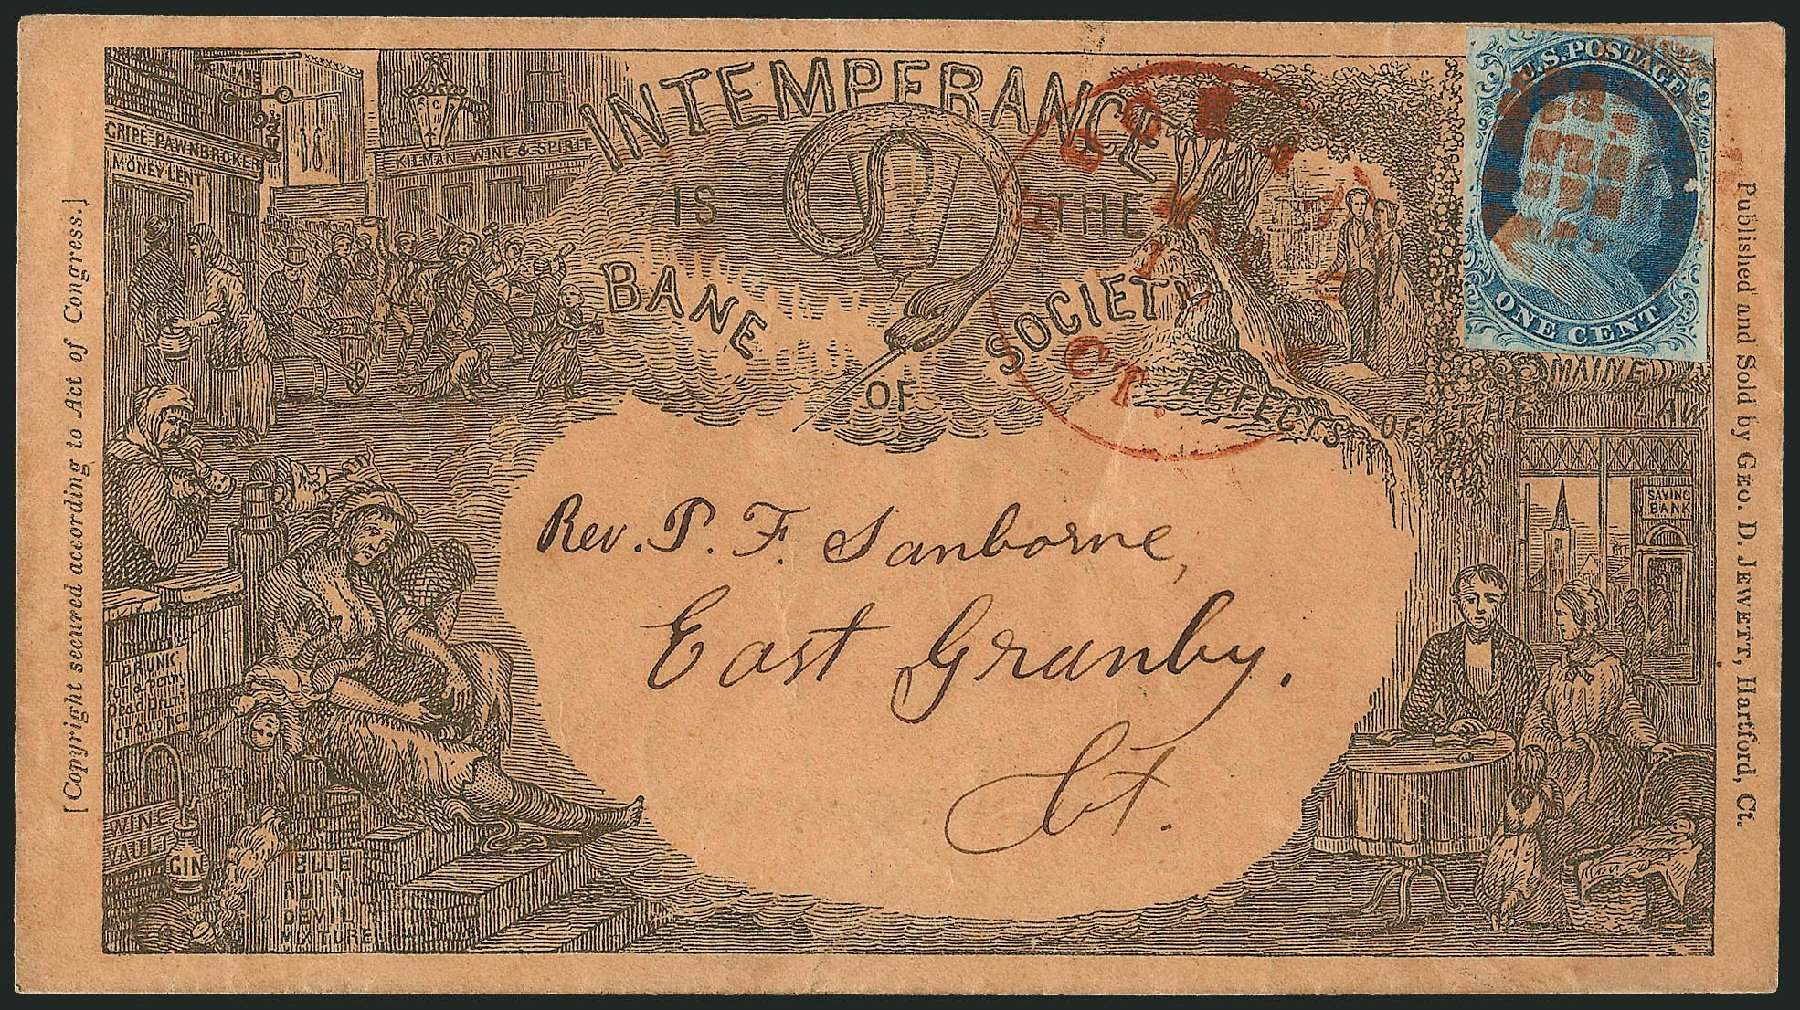 INTEMPERANCE
IS THE
BANE OF SOCIETY
EFFECTS OF THE
MAINE
LAW
U.S. POSTAGE
ONE CENT
CT.
GRIPE PAWNBROKER
MONEY LENT
KILMAN WINE & SPIRIT
SAVING
BANK
Rev. P. F. Sanborne,
East Granby.
Ct.
DRUNK
for a penny
Dead Drunk
WINE
VAULT
GIN
BLUE
RUIN
DEVIL
MIXTURE
[Copyright secured according to Act of Congress.]
Published and Sold by GEO. D. JEWETT, Hartford, Ct.